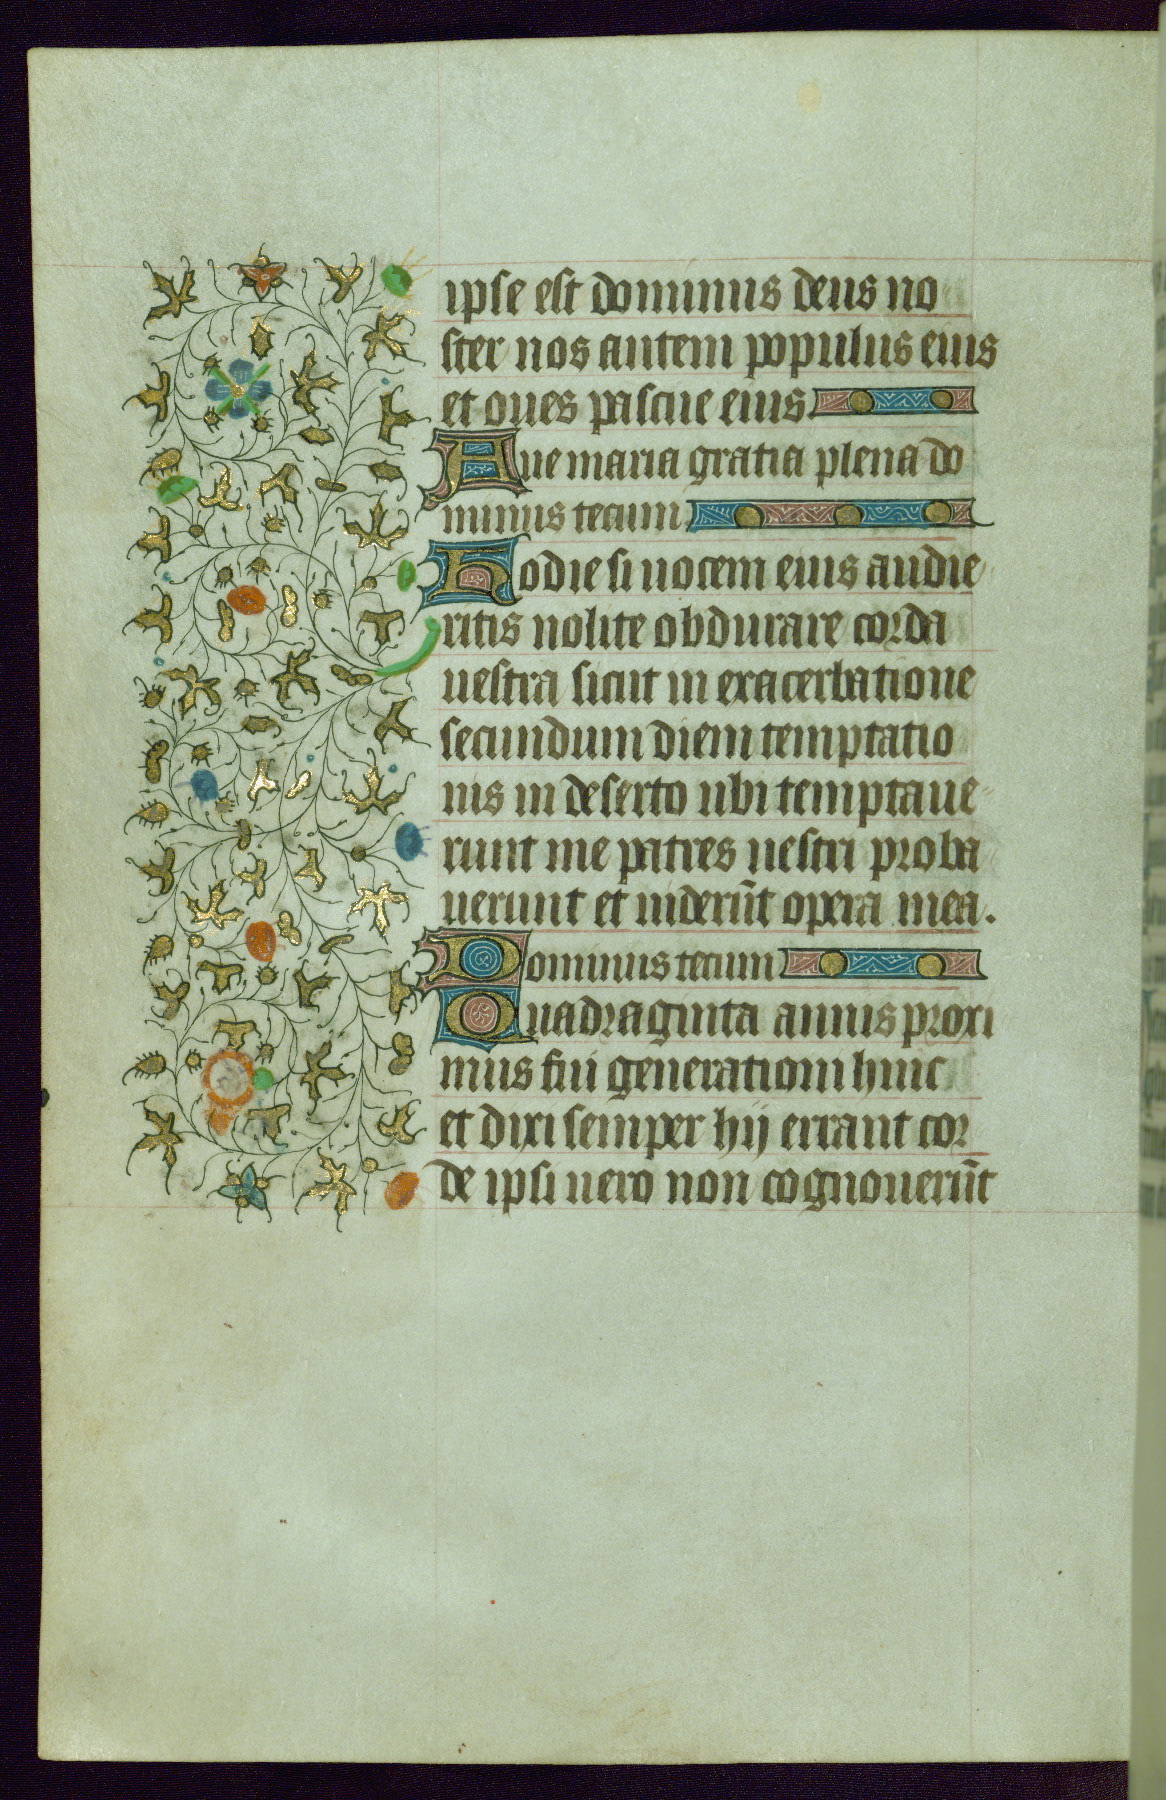 ipse est dominus deus no
ster nos autem populus eius
et oues pascue eius
Aue maria gratia plena do
minus tecum
Hodie si uocem eius audie
ritis nolite obdurare corda
uestra sicut in exacerbatione
secundum diem temptatio
nis in deserto ubi temptaue
runt me patres uestri proba
uerunt et uiderūt opera mea.
Dominus tecum
Quadraginta annis proxi
mus fui generationi huic
et dixi semper hij errant cor
de ipsi uero non cognouerūt